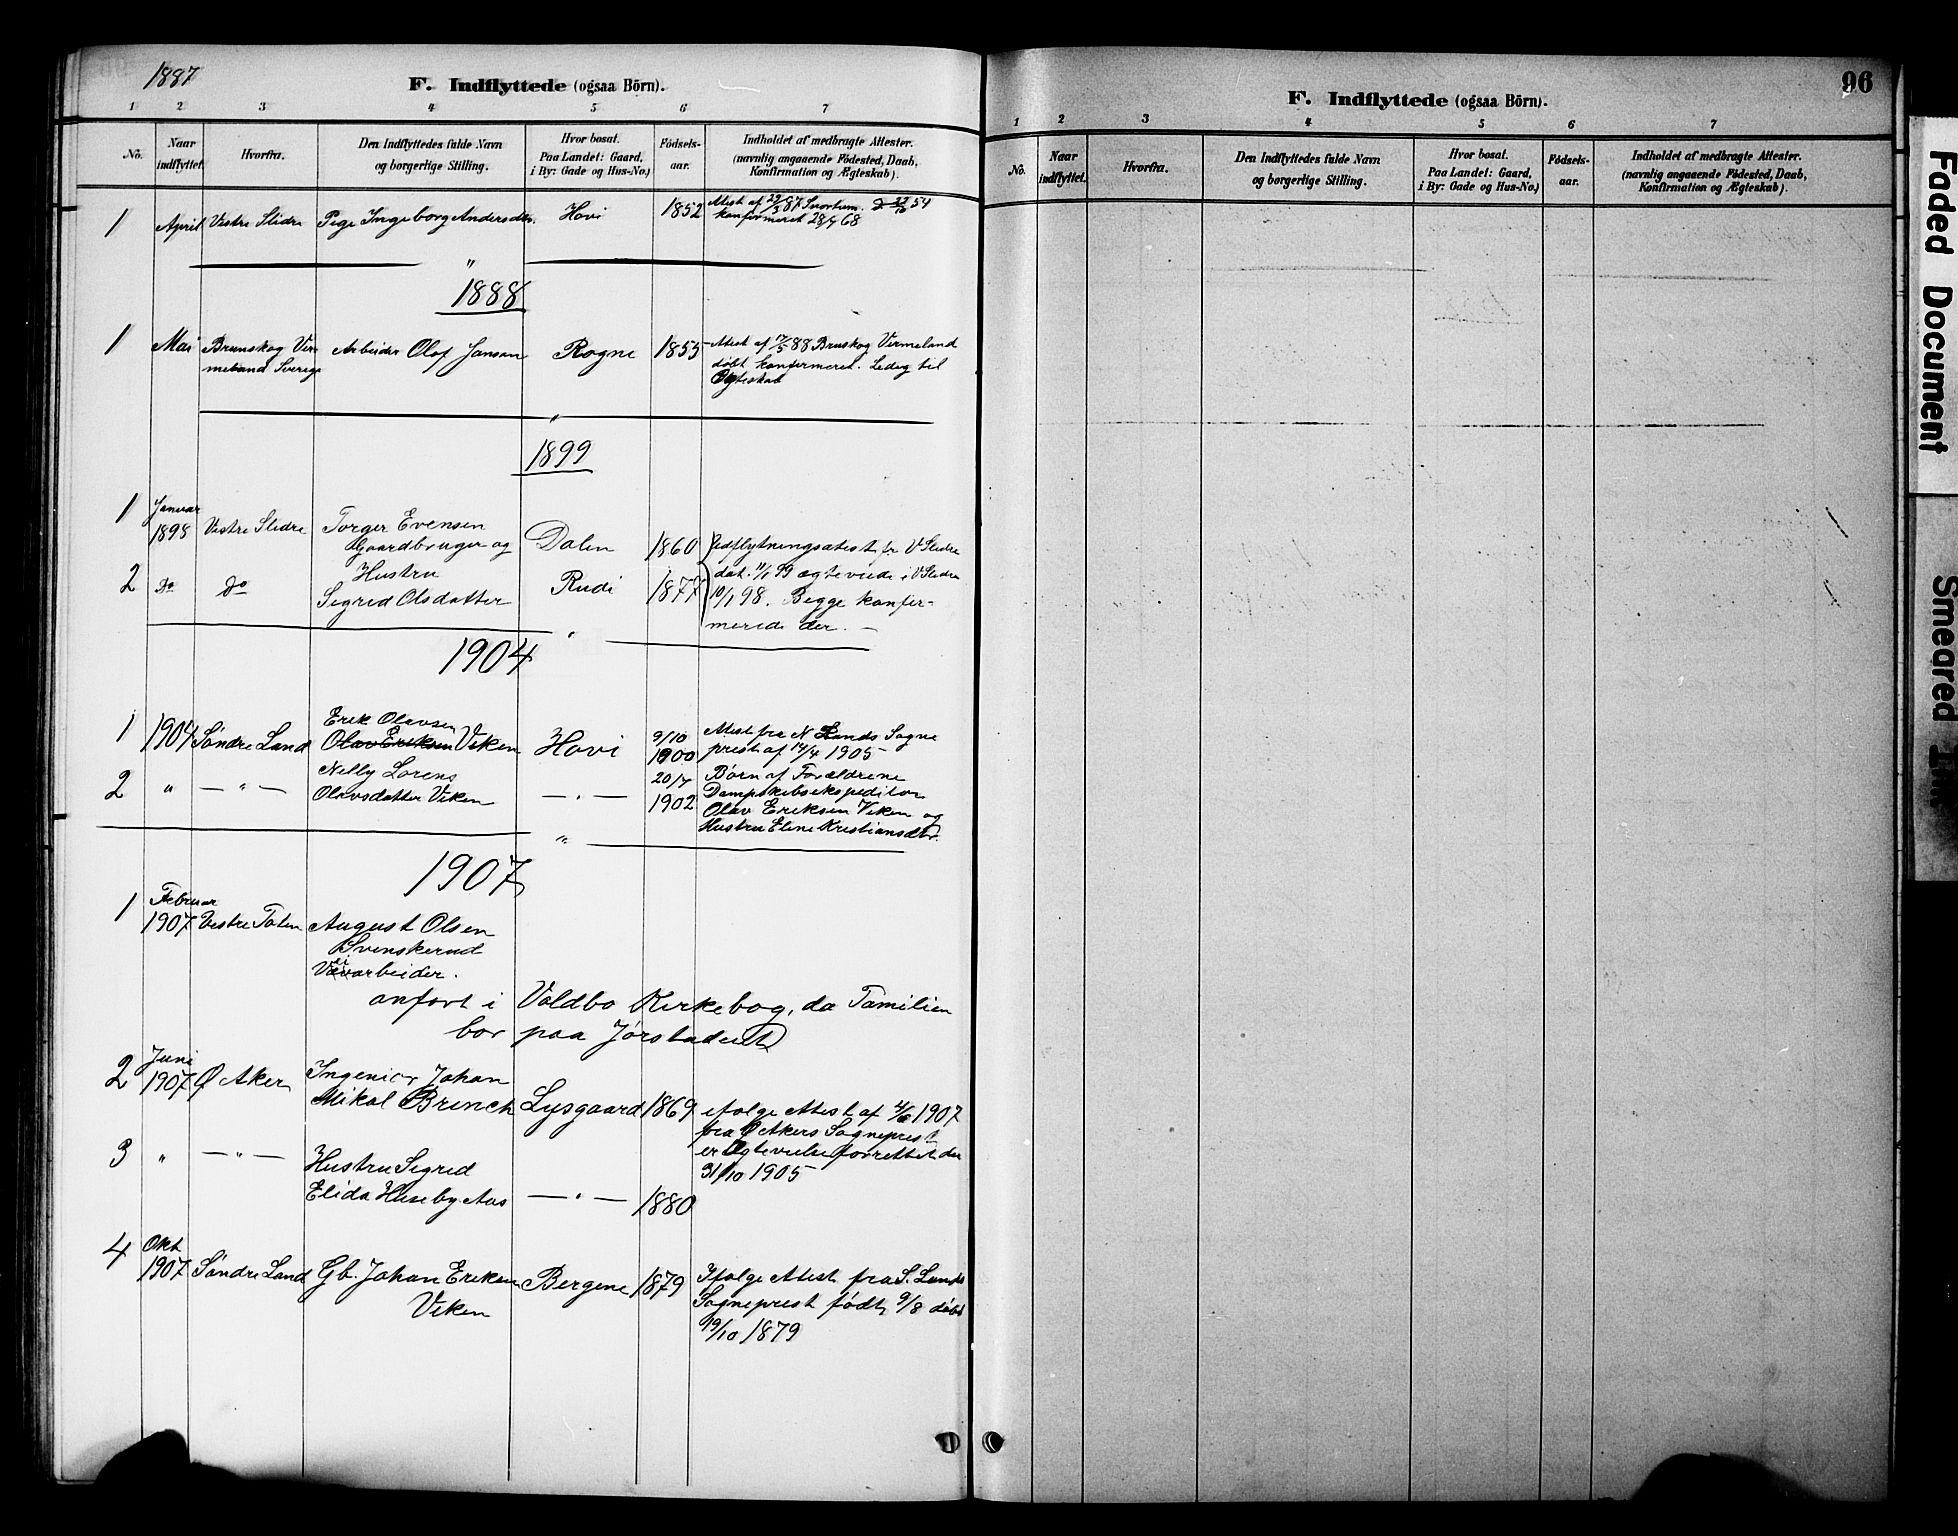 1887
F. Indflyttede (ogsaa Börn).
1 2 3 4 5 6 7
No.
Naar indflyttet.
Hvorfra.
Den Indflyttedes fulde Navn og borgerlige Stilling.
Hvor bosat. Paa Landet: Gaard, i By: Gade og Hus-No.)
Fødsels-aar.
Indholdet af medbragte Attester. (navnlig angaaende Fødested, Daab, Konfirmation og Ægteskab).
1 April Vestre Slidre Pige Ingeborg Andersdtr. Hovi 1852 Attest af 29/3 87
konfirmeret
1888
1 Mai Brunskog Ver Arbeider Olof Janson Rogne 1855 Attest af 17/5 88 Bruskog Vermeland
meland Sverige døbt konfirmeret. Ledig til
Ægteskab
1899
1 Januar
1898 Vestre Slidre Torger Evensen
Gaardbruger og Dalen 1860 Udflytningsattest fr V Slidre
Hustru dat. 11/1 99 ægteviede i V Slidre
2 Do Do Sigrid Olsdatter Rudi 1877 10/1 98. Begge konfir-
merede der. —
1904
1 1904 Søndre Land Erik Olavsen
Olav Eriksen Viken Hovi 9/10
1900 Attest fra N Lands Sogne
prest af 14/4 1905
2 " — " — Nelly Lorens
Olavsdatter Viken — " — 20/7
1902 Børn af Forældrene
Dampskibsekspeditør
Olav Eriksen Viken og
Hustru Eline Kristiansdtr.
1907
1 Februar
1907 Vestre Toten August Olsen
Svenskerud
Veiarbeider.
anført i Voldbo Kirkebog, da Familien
bor paa Jørstadeiet
2 Juni
1907 Ø Aker Ingeniør Johan
Mikal Brinch Lysgaard 1869 ifølge Attest af 4/6 1907
fra Ø Akers Sogneprest
er Ægtevielse forrettet der
31/10 1905
3 " — " — Hustru Sigrid
Elida Huseby Aas — " — 1880
4 Okt
1907 Søndre Land Gb. Johan Eriksen
Viken Bergene 1879 Ifølge Attest fra S. Lands
Sogneprest født 9/8 døbt
19/10 1879
96
F. Indflyttede (ogsaa Börn).
1 2 3 4 5 6 7
No.
Naar indflyttet.
Hvorfra.
Den Indflyttedes fulde Navn og borgerlige Stilling.
Hvor bosat. Paa Landet: Gaard, i By: Gade og Hus-No.)
Fødsels-aar.
Indholdet af medbragte Attester. (navnlig angaaende Fødested, Daab, Konfirmation og Ægteskab).
Faded Document
Smeared Ink